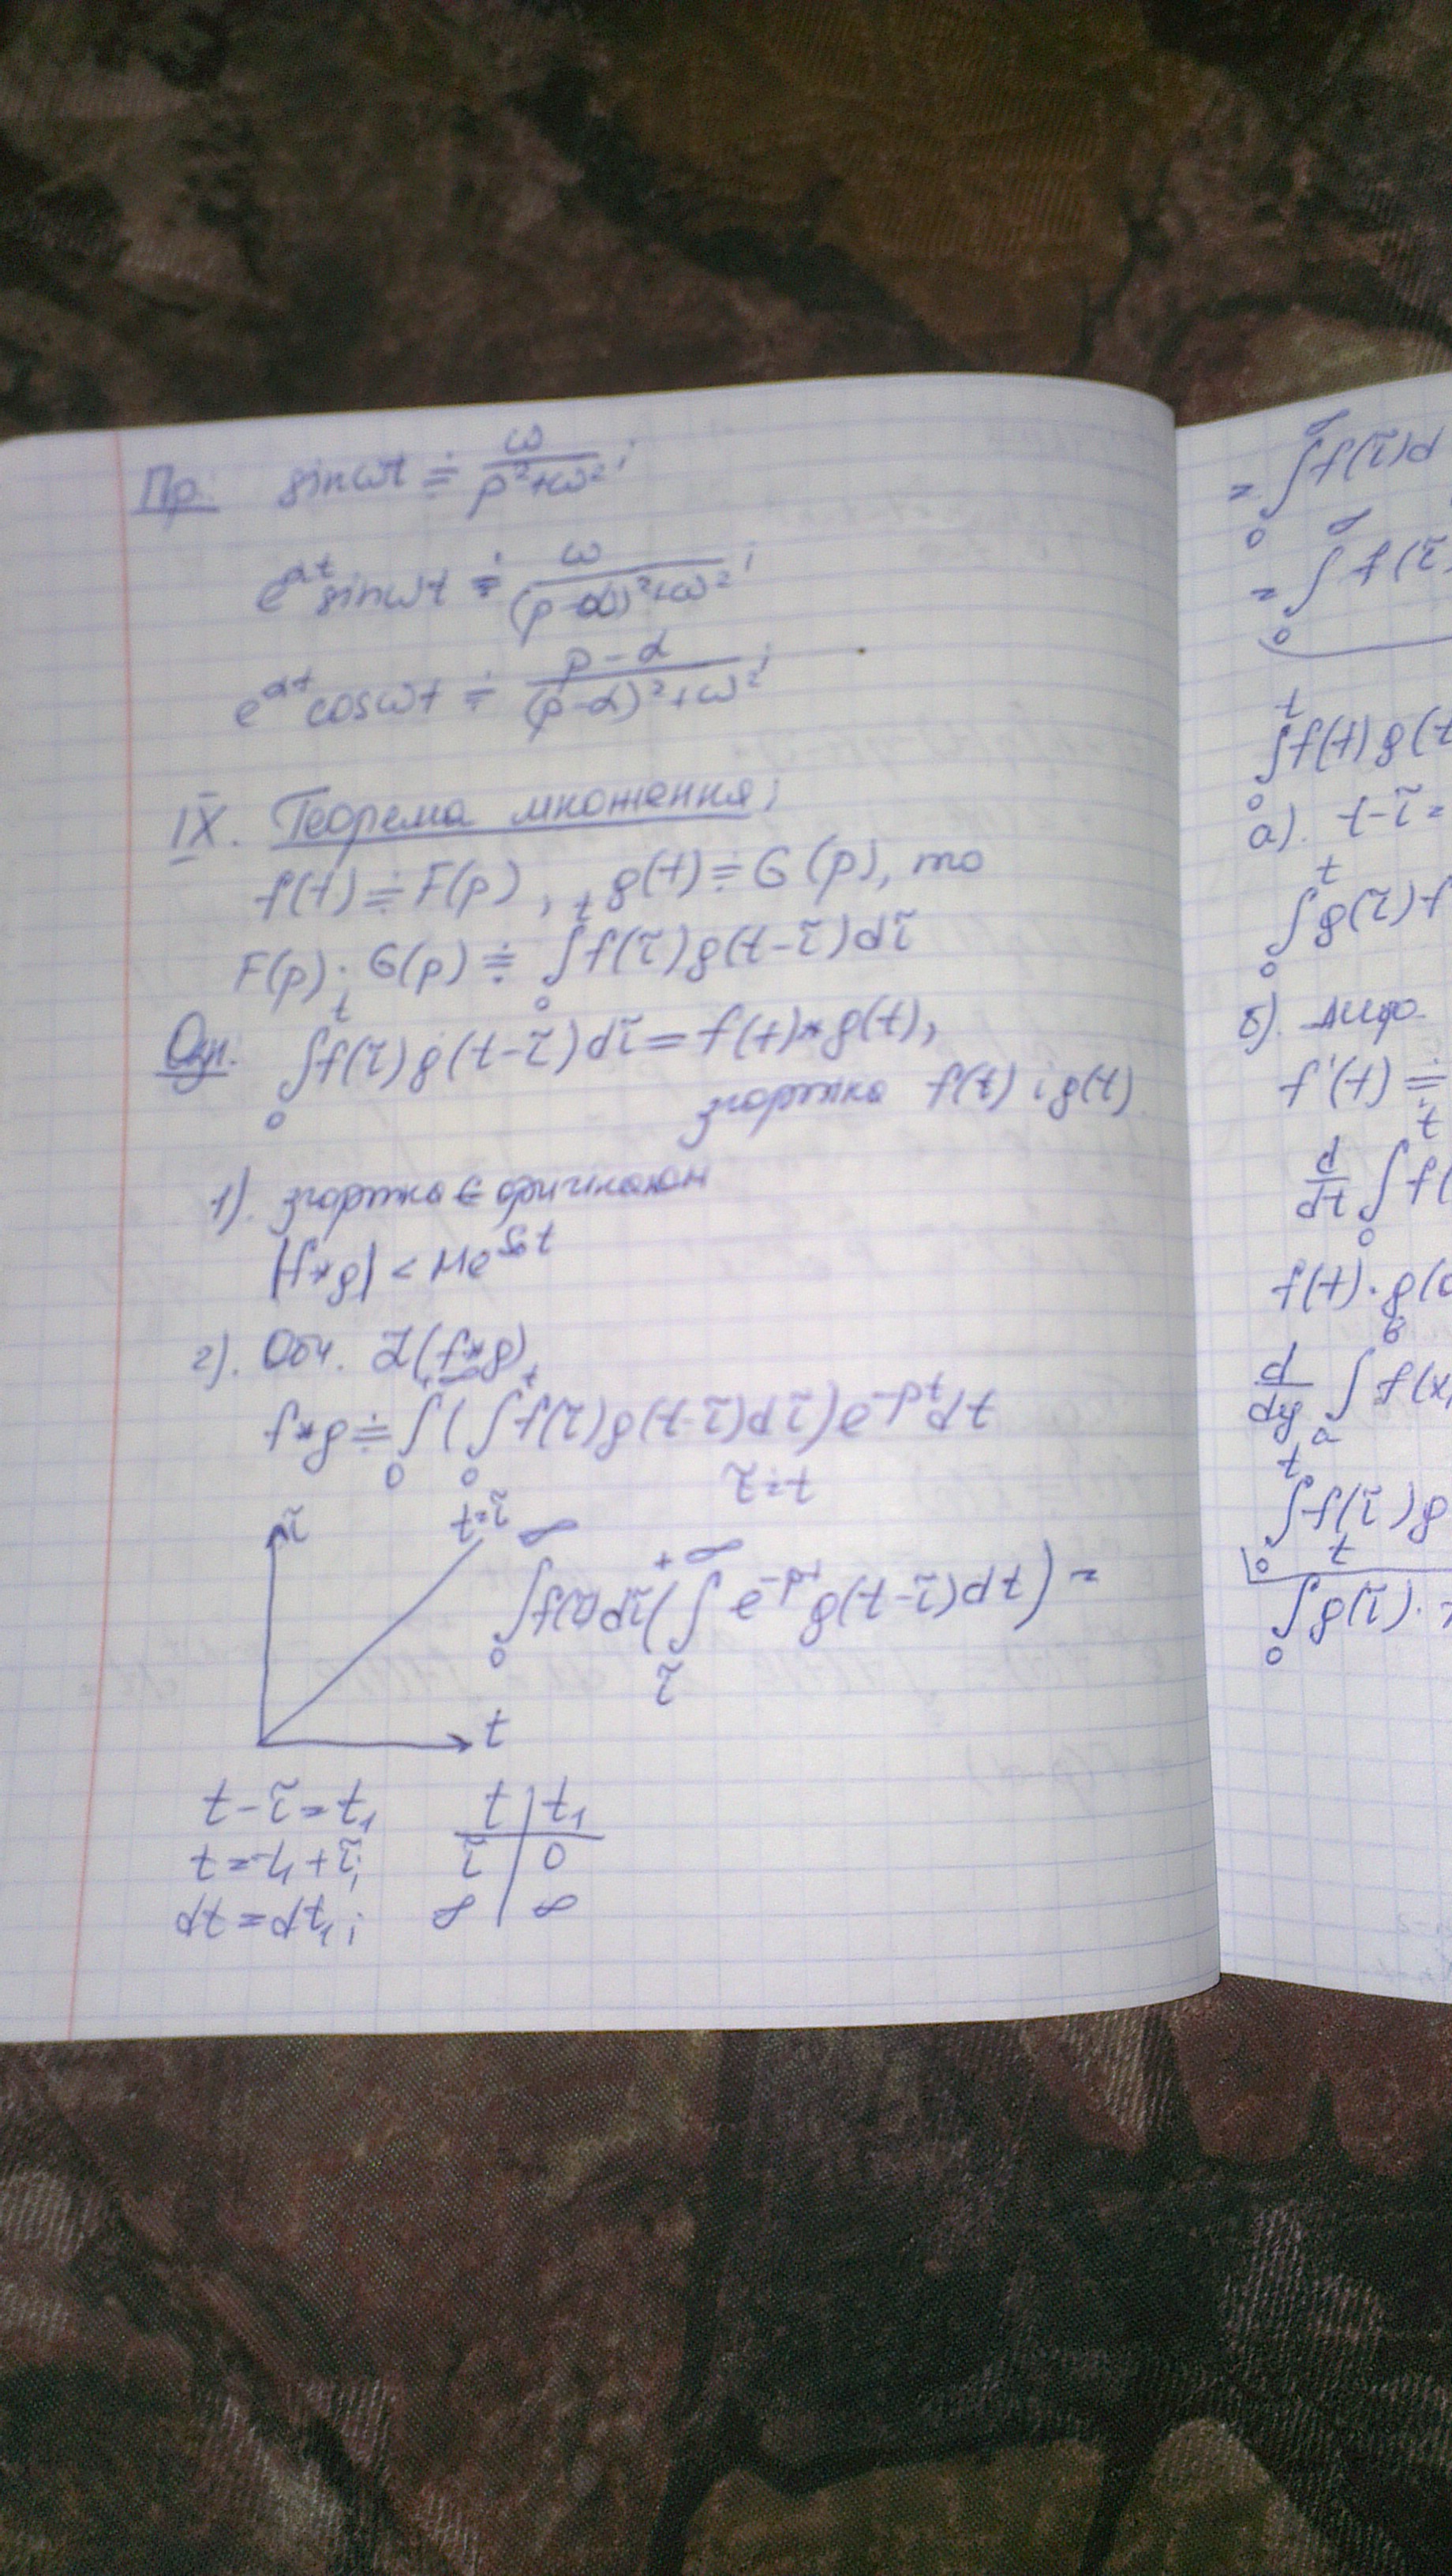 Пр: sin ωt ≑ ω/(p²+ω²);
e^{αt} sin ωt ≑ ω/((p-α)²+ω²);
e^{αt} cos ωt ≑ (p-α)/((p-α)²+ω²);
IX. Теорема множення:
f(t) ≑ F(p), g(t) ≑ G(p), то
F(p)·G(p) ≑ ∫₀ᵗ f(τ)g(t-τ)dτ
Озн. ∫₀ᵗ f(τ)g(t-τ)dτ = f(t)*g(t),
згортка f(t) і g(t)
1). згортка є оригіналом
|f*g| < Me^{S₀t}
2). Обч. L(f*g)
f*g ≑ ∫₀^{+∞} (∫₀ᵗ f(τ)g(t-τ)dτ) e^{-pt} dt
τ=t
τ t=τ
∫₀^∞ f(τ)dτ (∫_τ^{+∞} e^{-pt} g(t-τ)dt) =
t
t-τ=t₁ t | t₁
t=t₁+τ; τ | 0
dt=dt₁; ∞ | ∞
= ∫₀^∞ f(τ)d
= ∫₀^∞ f(τ
∫₀ᵗ f(t)g(t
а). t-τ=
∫₀ᵗ g(τ)f
б).
f'(t) ≑
d/dt ∫₀ᵗ f(
f(t)·g(0
d/dy ∫ₐᵇ f(x,
∫₀ᵗ f(τ)g
∫₀ᵗ g(τ)·